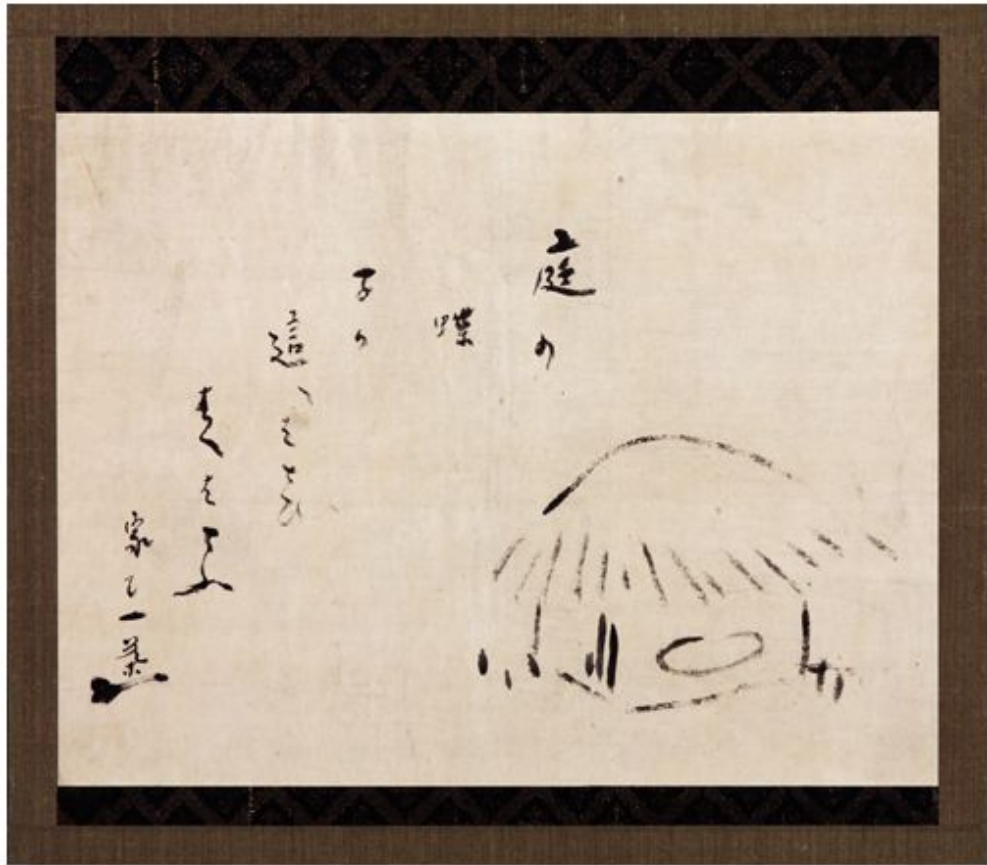 庭の
蝶
子か
這へはとひ
はへはとふ
家も一茶